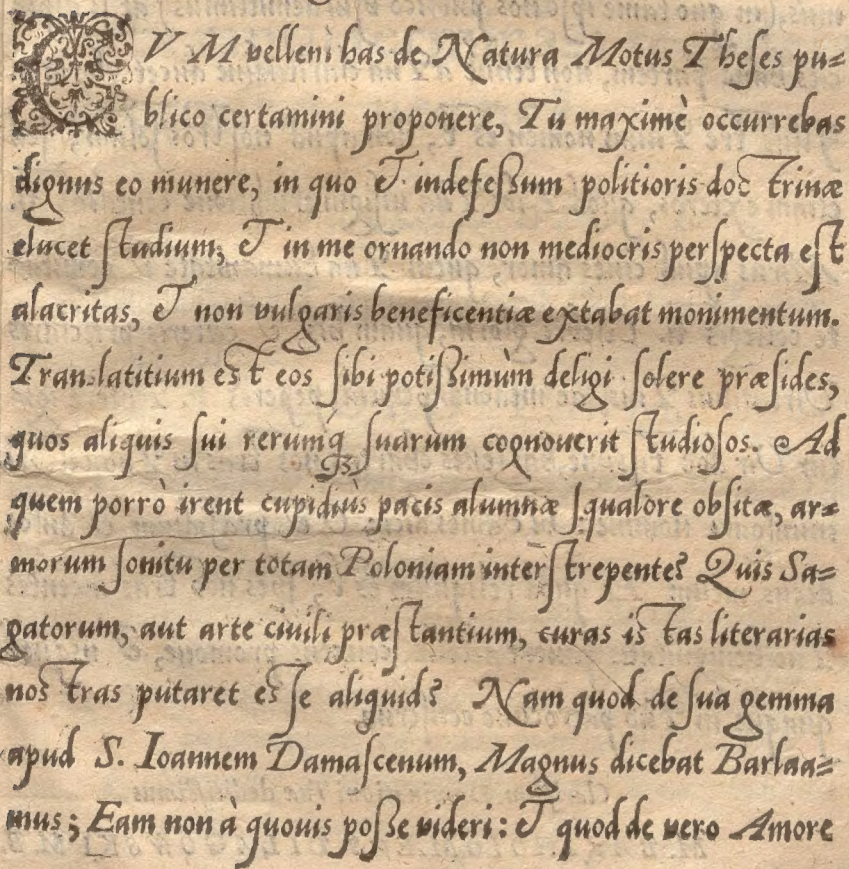 CVM vellem has de Natura Motus Theses pu-
blico certamini proponere, Tu maximè occurrebas
dignus eo munere, in quo & indefeßum politioris doctrinæ
elucet ſtudium, & in me ornando non mediocris perſpecta eſt
alacritas, & non vulgaris beneficentiæ extabat monimentum.
Tranſlatitium eſt eos ſibi potißimùm deligi ſolere præſides,
quos aliquis ſui rerumq́ꝫ ſuarum cognouerit ſtudioſos. Ad
quem porrò irent cupidiùs pacis alumnæ ſqualore obſitæ, ar-
morum ſonitu per totam Poloniam interſtrepente? Quis Sa-
gatorum, aut arte ciuili præſtantium, curas iſtas literarias
noſtras putaret eſſe aliquid? Nam quod de ſua gemma
apud S. Ioannem Damaſcenum, Magnus dicebat Barlaa-
mus; Eam non à quouis poße videri: & quod de vero Amore